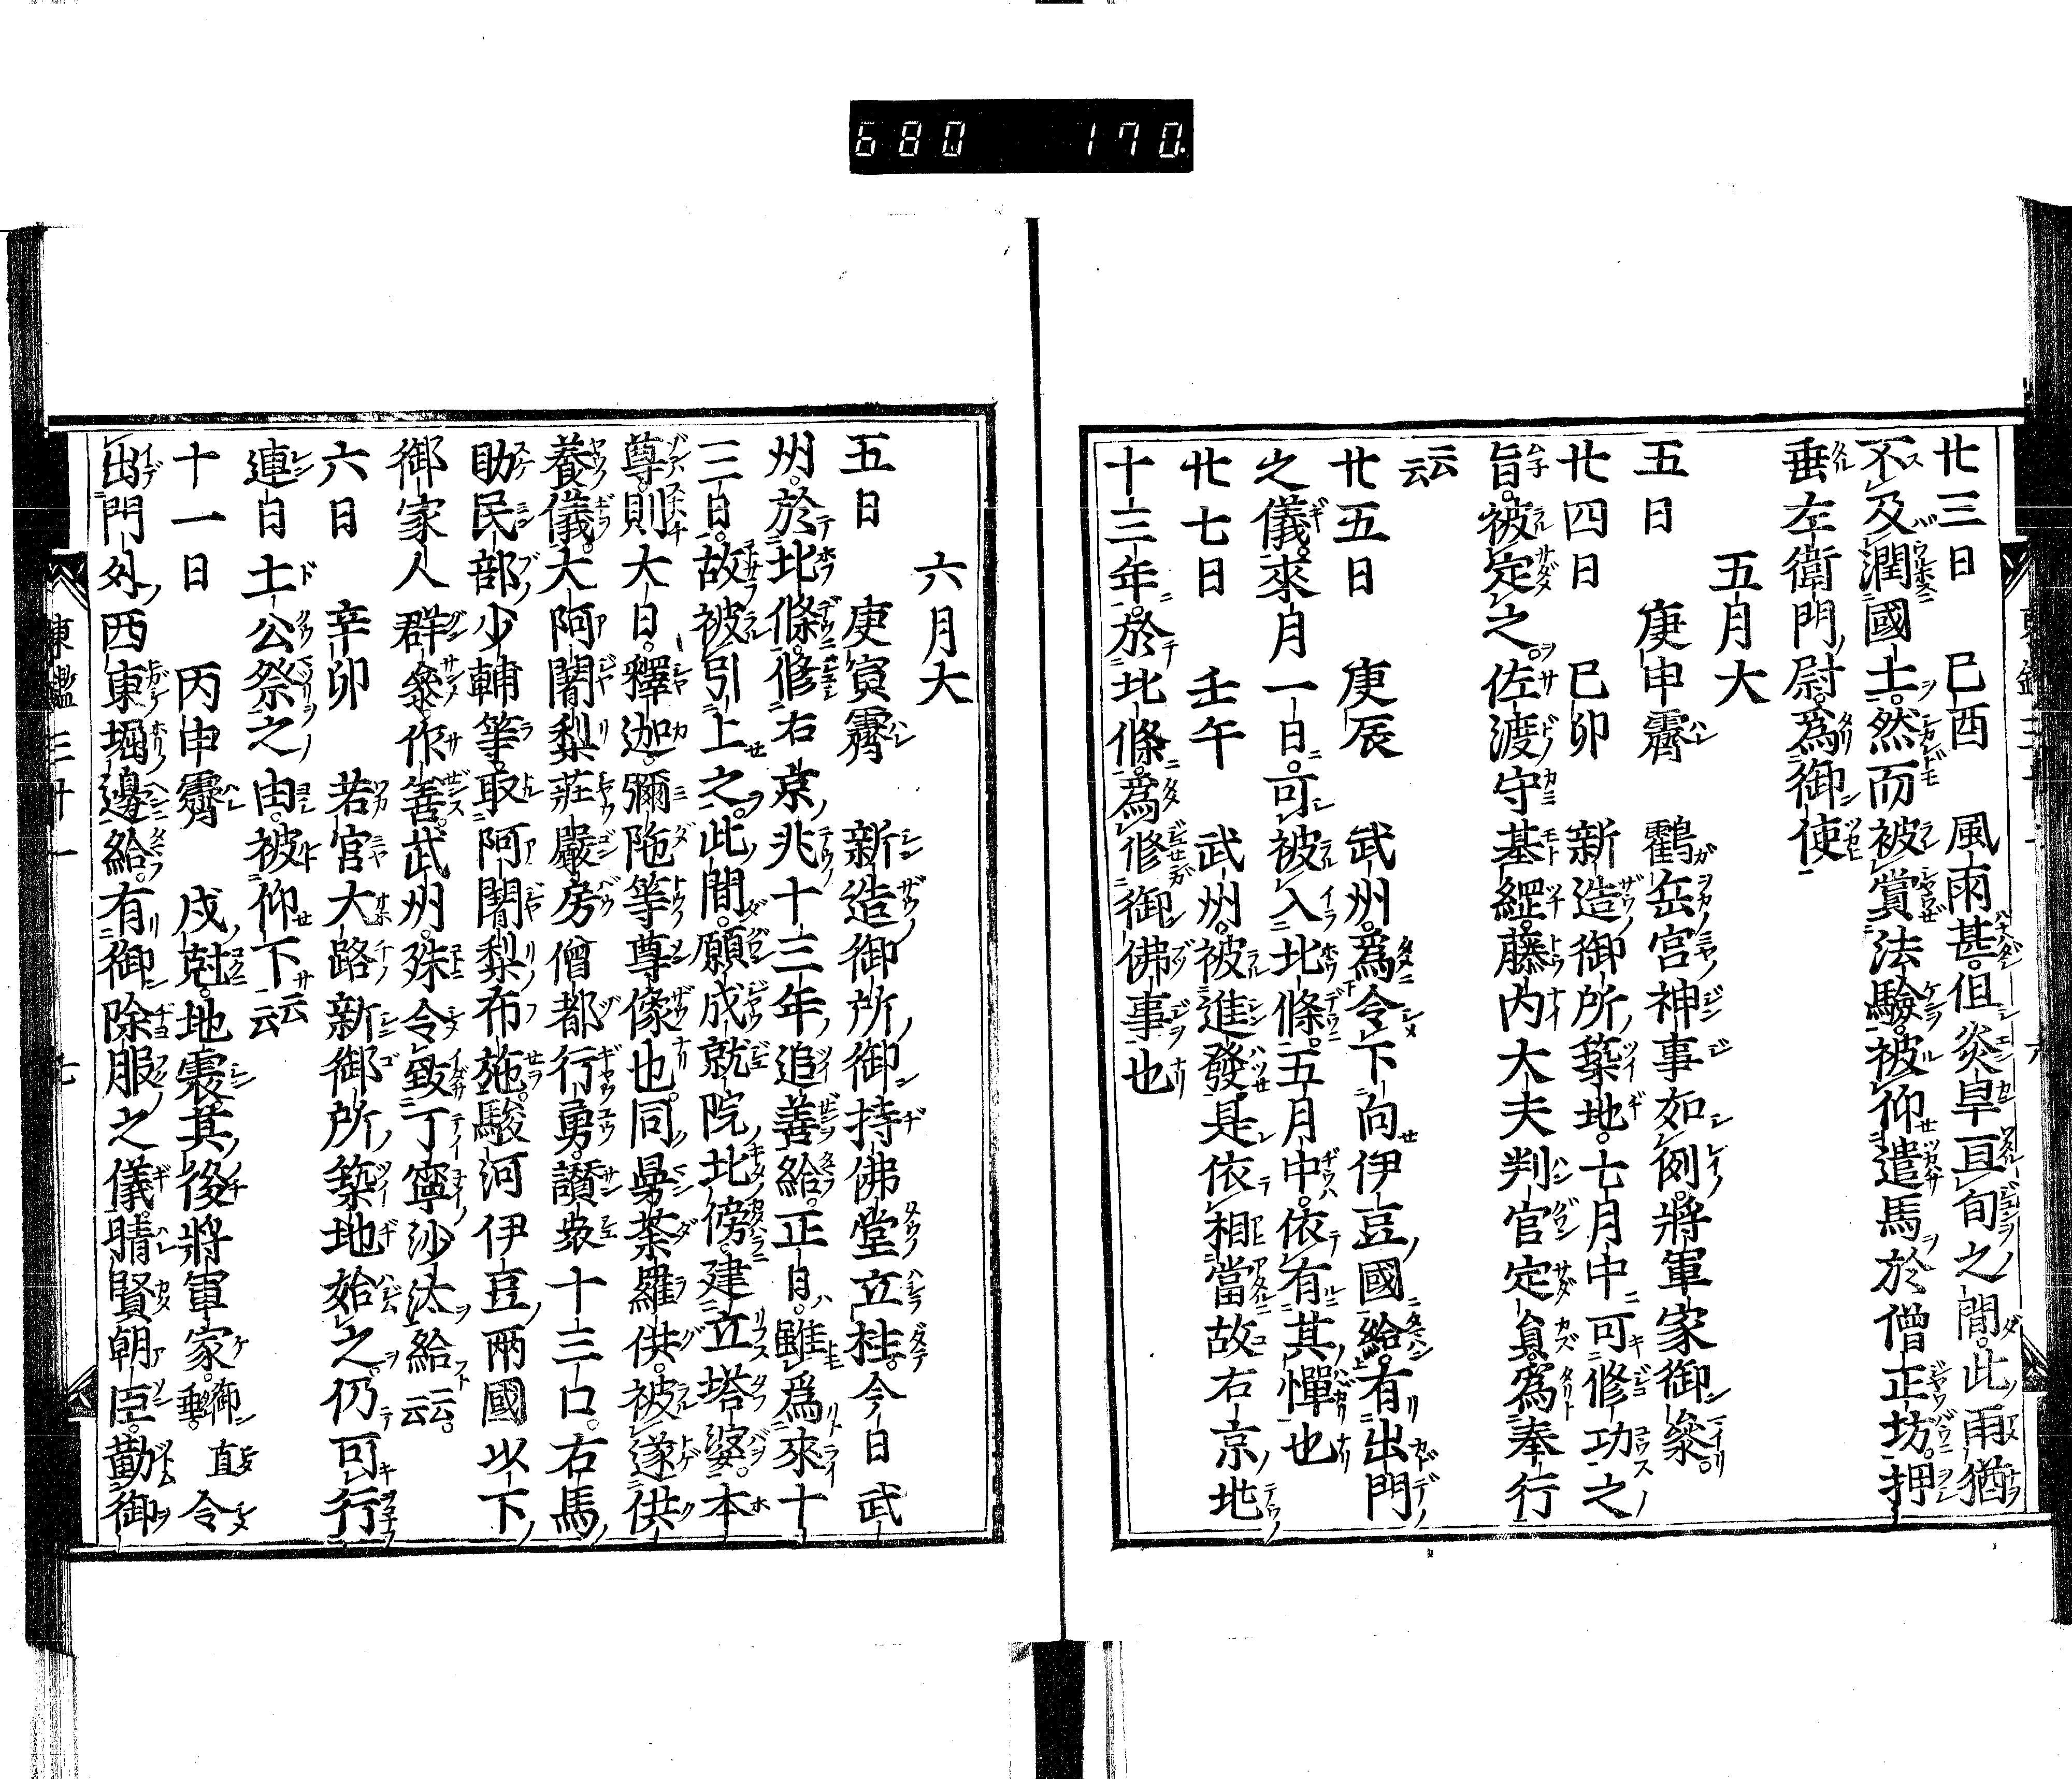 680 170
廿三日 已酉 風雨甚。但炎旱亘旬之間。此雨猶
不及潤國土。然而被賞法驗。被仰遣馬於僧正坊。押
垂左衛門尉。爲御使
五月大
五日 庚申霽 鶴岳宮神事如例。將軍家御參。
廿四日 已卯 新造御所築地。七月中可修功之
旨。被定之。佐渡守基綱。藤内大夫判官定員。爲奉行
云云
廿五日 庚辰 武州。爲令下向伊豆國給。有出門
之儀。來月一日。可被入北條。五月中。依有其憚也
廿七日 壬午 武州。被進發。是依相當故右京兆
十三年。於北條。爲修御佛事也
六月大
五日 庚寅霽 新造御所御持佛堂立柱。今日武
州。於北條。修右京兆十三年追善給。正日。雖爲來十
三日。故被引上之。此間。願成就院北傍。建立塔婆。本
尊。則大日。釋迦。彌陁等尊像也。同曼荼羅供。被遂供
養儀。大阿闍梨莊嚴房僧都行勇。讃衆十三口。右馬
助民部少輔等。取阿闍梨布施。駿河伊豆兩國以下
御家人群參。作善。武州。殊令致丁寧沙汰給云云。
六日 辛卯 若宮大路新御所築地始之。仍可行
連日土公祭之由。被仰下云云
十一日 丙申霽 戌尅。地震。其後將軍家。御直垂。令
出門外西東堀邊給。有御除服之儀。晴賢朝臣。勤御
東鑑三十一 六
東鑑三廿一 七